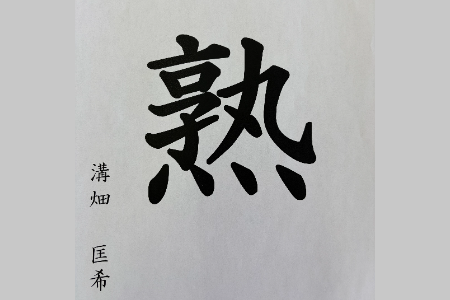 熟
溝畑 匡希